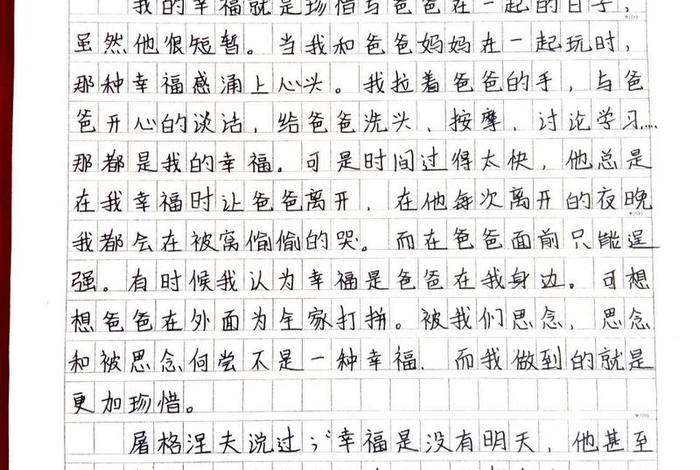 我的幸福就是珍惜与爸爸在一起的日子，
虽然他很短暂。当我和爸爸妈妈在一起玩时，
那种幸福感涌上心头。我拉着爸爸的手，与爸
爸开心的谈话，给爸爸洗头、按摩，讨论学习……
那都是我的幸福。可是时间过得太快，他总是
在我幸福时让爸爸离开，在他每次离开的夜晚
我都会在被窝偷偷的哭。而在爸爸面前只能逞
强。有时候我认为幸福是爸爸在我身边。可想
想爸爸在外面为全家打拼。被我们思念，思念
和被思念何尝不是一种幸福，而我做到的就是
更加珍惜。
屠格涅夫说过："幸福是没有明天，他甚至